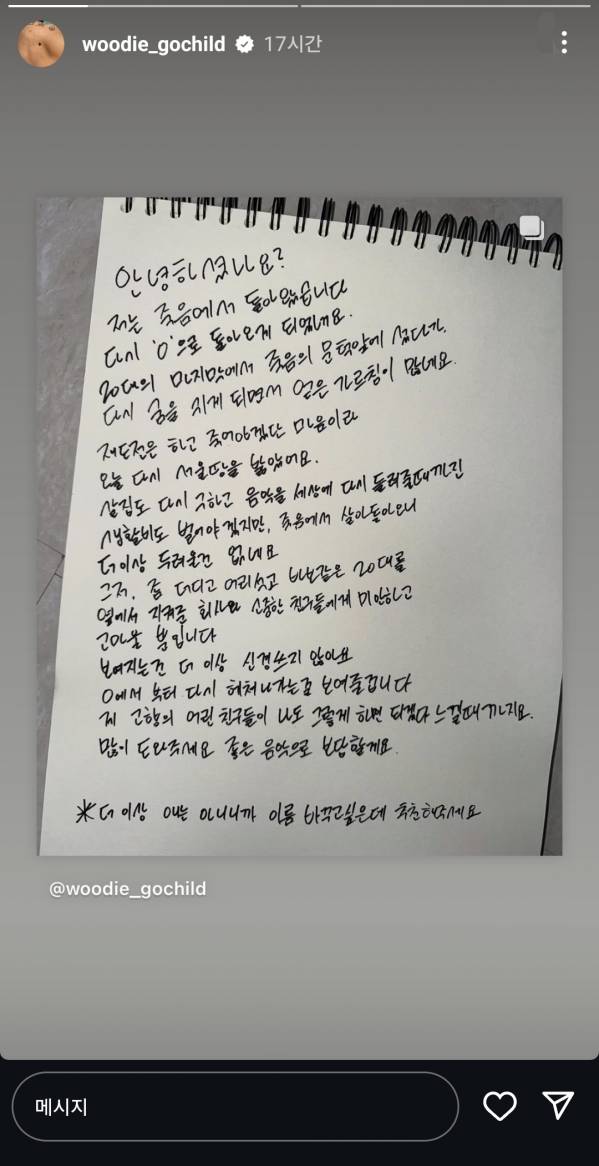 woodie_gochild 17시간
안녕하셨나요?
저는 죽음에서 돌아왔습니다
다시 '0'으로 돌아오게 되었네요.
20대의 마지막에서 죽음의 문턱앞에 섰다가,
다시 숨을 쉬게 되면서 얻은 가르침이 많네요.
재도전은 하고 죽어야겠단 마음이라
오늘 다시 서울땅을 밟았어요.
살집도 다시 구하고 음악을 세상에 다시 들려줄때까진
생활비도 벌어야 겠지만, 죽음에서 살아돌아오니
더이상 두려울건 없네요
그저, 좀 더디고 어리석고 바보같은 20대를
옆에서 지켜준 회사와 소중한 친구들에게 미안하고
고마울 뿐입니다
보여지는건 더 이상 신경쓰지 않아요
0에서 부터 다시 헤쳐나가는걸 보여줄겁니다
제 고향의 어린 친구들이 나도 그렇게 하면 되겠다 느낄때까지요.
많이 도와주세요 좋은 음악으로 보답할게요.
*더 이상 애는 아니니까 이름 바꾸고싶은데 추천해주세요
@woodie_gochild
메시지